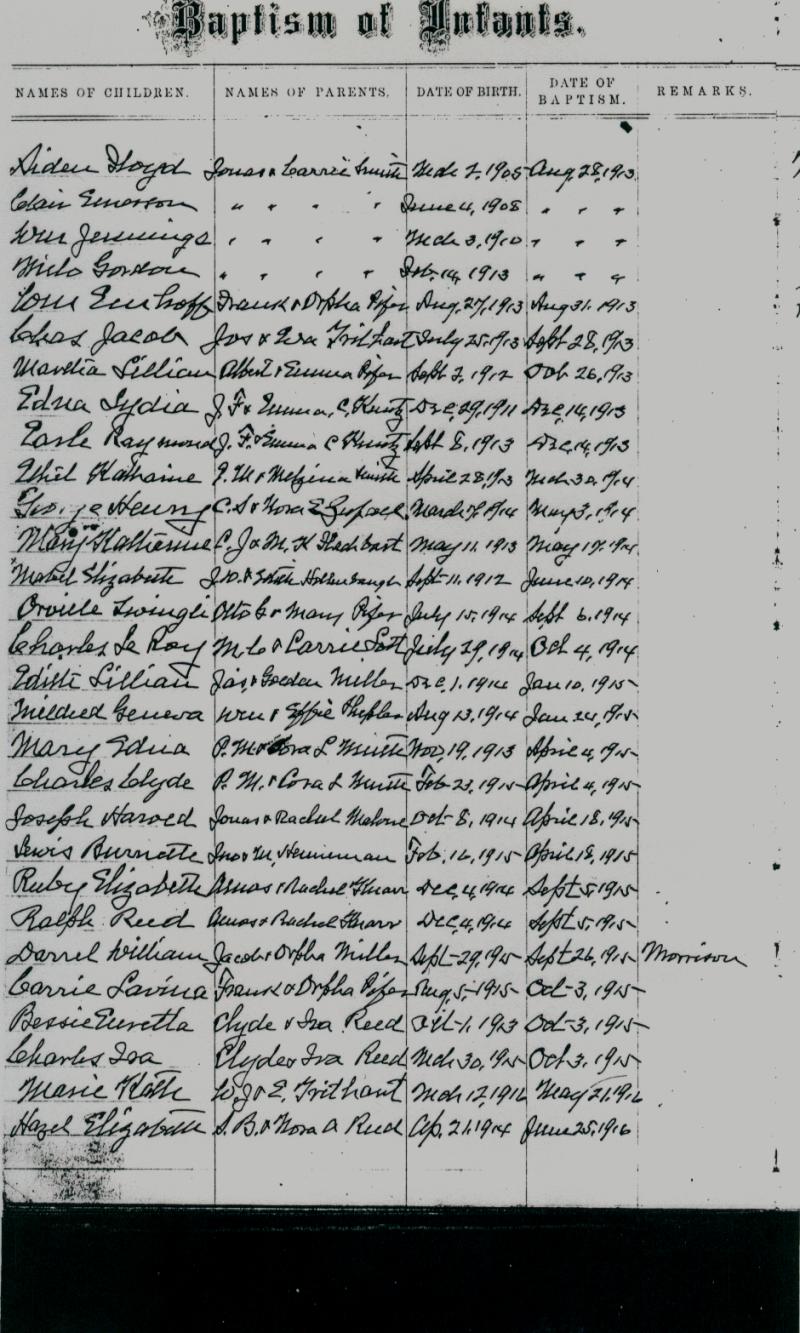 Baptism of Infants.
NAMES OF CHILDREN. NAMES OF PARENTS. DATE OF BIRTH. DATE OF BAPTISM. REMARKS.
Floyd Jonas & Carrie Smith Mch 2, 1905 Aug, 28, 1913
Clair Emerson " " " " June 4, 1908 " " "
Wm Jennings " " " " Mch 3, 1910 " " "
Milo Gordon " " " " Feb. 14, 1913 " " "
Frank & Orpha Pifer Aug, 27, 1913 Aug 31, 1913
Chas Jacob Jos & Eva July 25, 1913 Sept 28, 1913
Lillian Albert & Emma Pifer Sept 2, 1912 Oct 26, 1913
Edna Lydia J. F & Emma, C, Kuntz Dec, 29, 1911 Dec, 14, 1913
Earle Raymond J. F. & Emma C Kuntz Sept 8, 1913 Dec, 14, 1913
Ethel Katharine P. M & Smith April 28, 1913 Mch 30, 1914
George Henry C. S & Nora E March 1914 May 3, 1914
Mary Katherine C. J & M. K May 11, 1913 May 17, 1914
Mabel Elizabeth & Edith Hollenbaugh Sept 11, 1912 June 10, 1914
Orville Zwingli Otto C & Mary Pifer July 15, 1914 Sept 6, 1914
Charles Le Roy & Carrie July 29, 1914 Oct 4, 1914
Edith Lillian Jas, & Miller Dec, 1, 1914 Jan 10, 1915
Mildred Geneva Wm & Effie Aug 13, 1914 Jan 24, 1915
Mary Edna P. M & Cora L Nov, 19, 1913 April 4, 1915
Charles Clyde P. M. & Cora L Feb 23, 1915 April 4, 1915
Joseph Harold Jonas & Rachel Oct 8, 1914 April 18, 1915
Lewis Burnette Feb. 16, 1915 April 18, 1915
Ruby Elizabeth Amos & Rachel Dec, 4, 1914 Sept 5, 1915
Ralph Reed Amos & Rachel Dec, 4, 1914 Sept 5, 1915
Darrel William Jacob & Orpha Miller Sept 29, 1915 Sept 26, 1915 Morrison
Carrie Lavina Frank & Orpha Pifer Aug, 5, 1915 Oct 3, 1915
Bessie Euretta Clyde & Ira Reed Oct 1, 1913 Oct 3, 1915
Charles Ira Clyde & Ira Reed Mch 30, 1915 Oct 3, 1915
Marie Kath W. J & E. Mch 12, 1916 May 21, 1916
Hazel Elizabeth S. B. & Nora A Reed Ap. 21, 1914 June 25, 1916